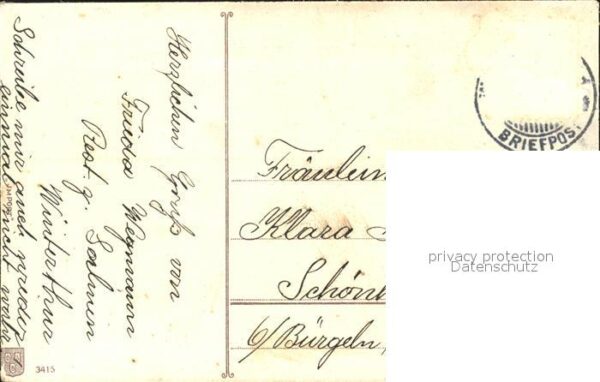 Herzlichen Gruß von
Frieda Wegmann
Rest. z. Salmen
Winterthur
Schreibe mir auch wieder
einmal nicht wahr
IMPORT
3415
BRIEFPOS
Fräulein
Klara
Schöne
b/Bürgeln,
privacy protection
Datenschutz